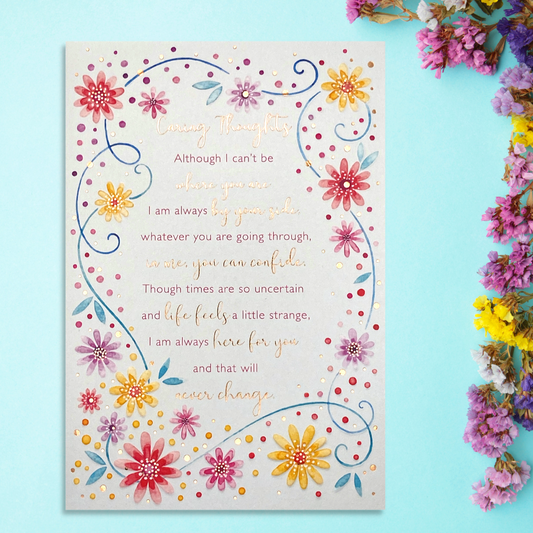 Caring Thoughts
Although I can't be
where you are
I am always by your side,
whatever you are going through,
in me, you can confide.
Though times are so uncertain
and life feels a little strange,
I am always here for you
and that will
never change.